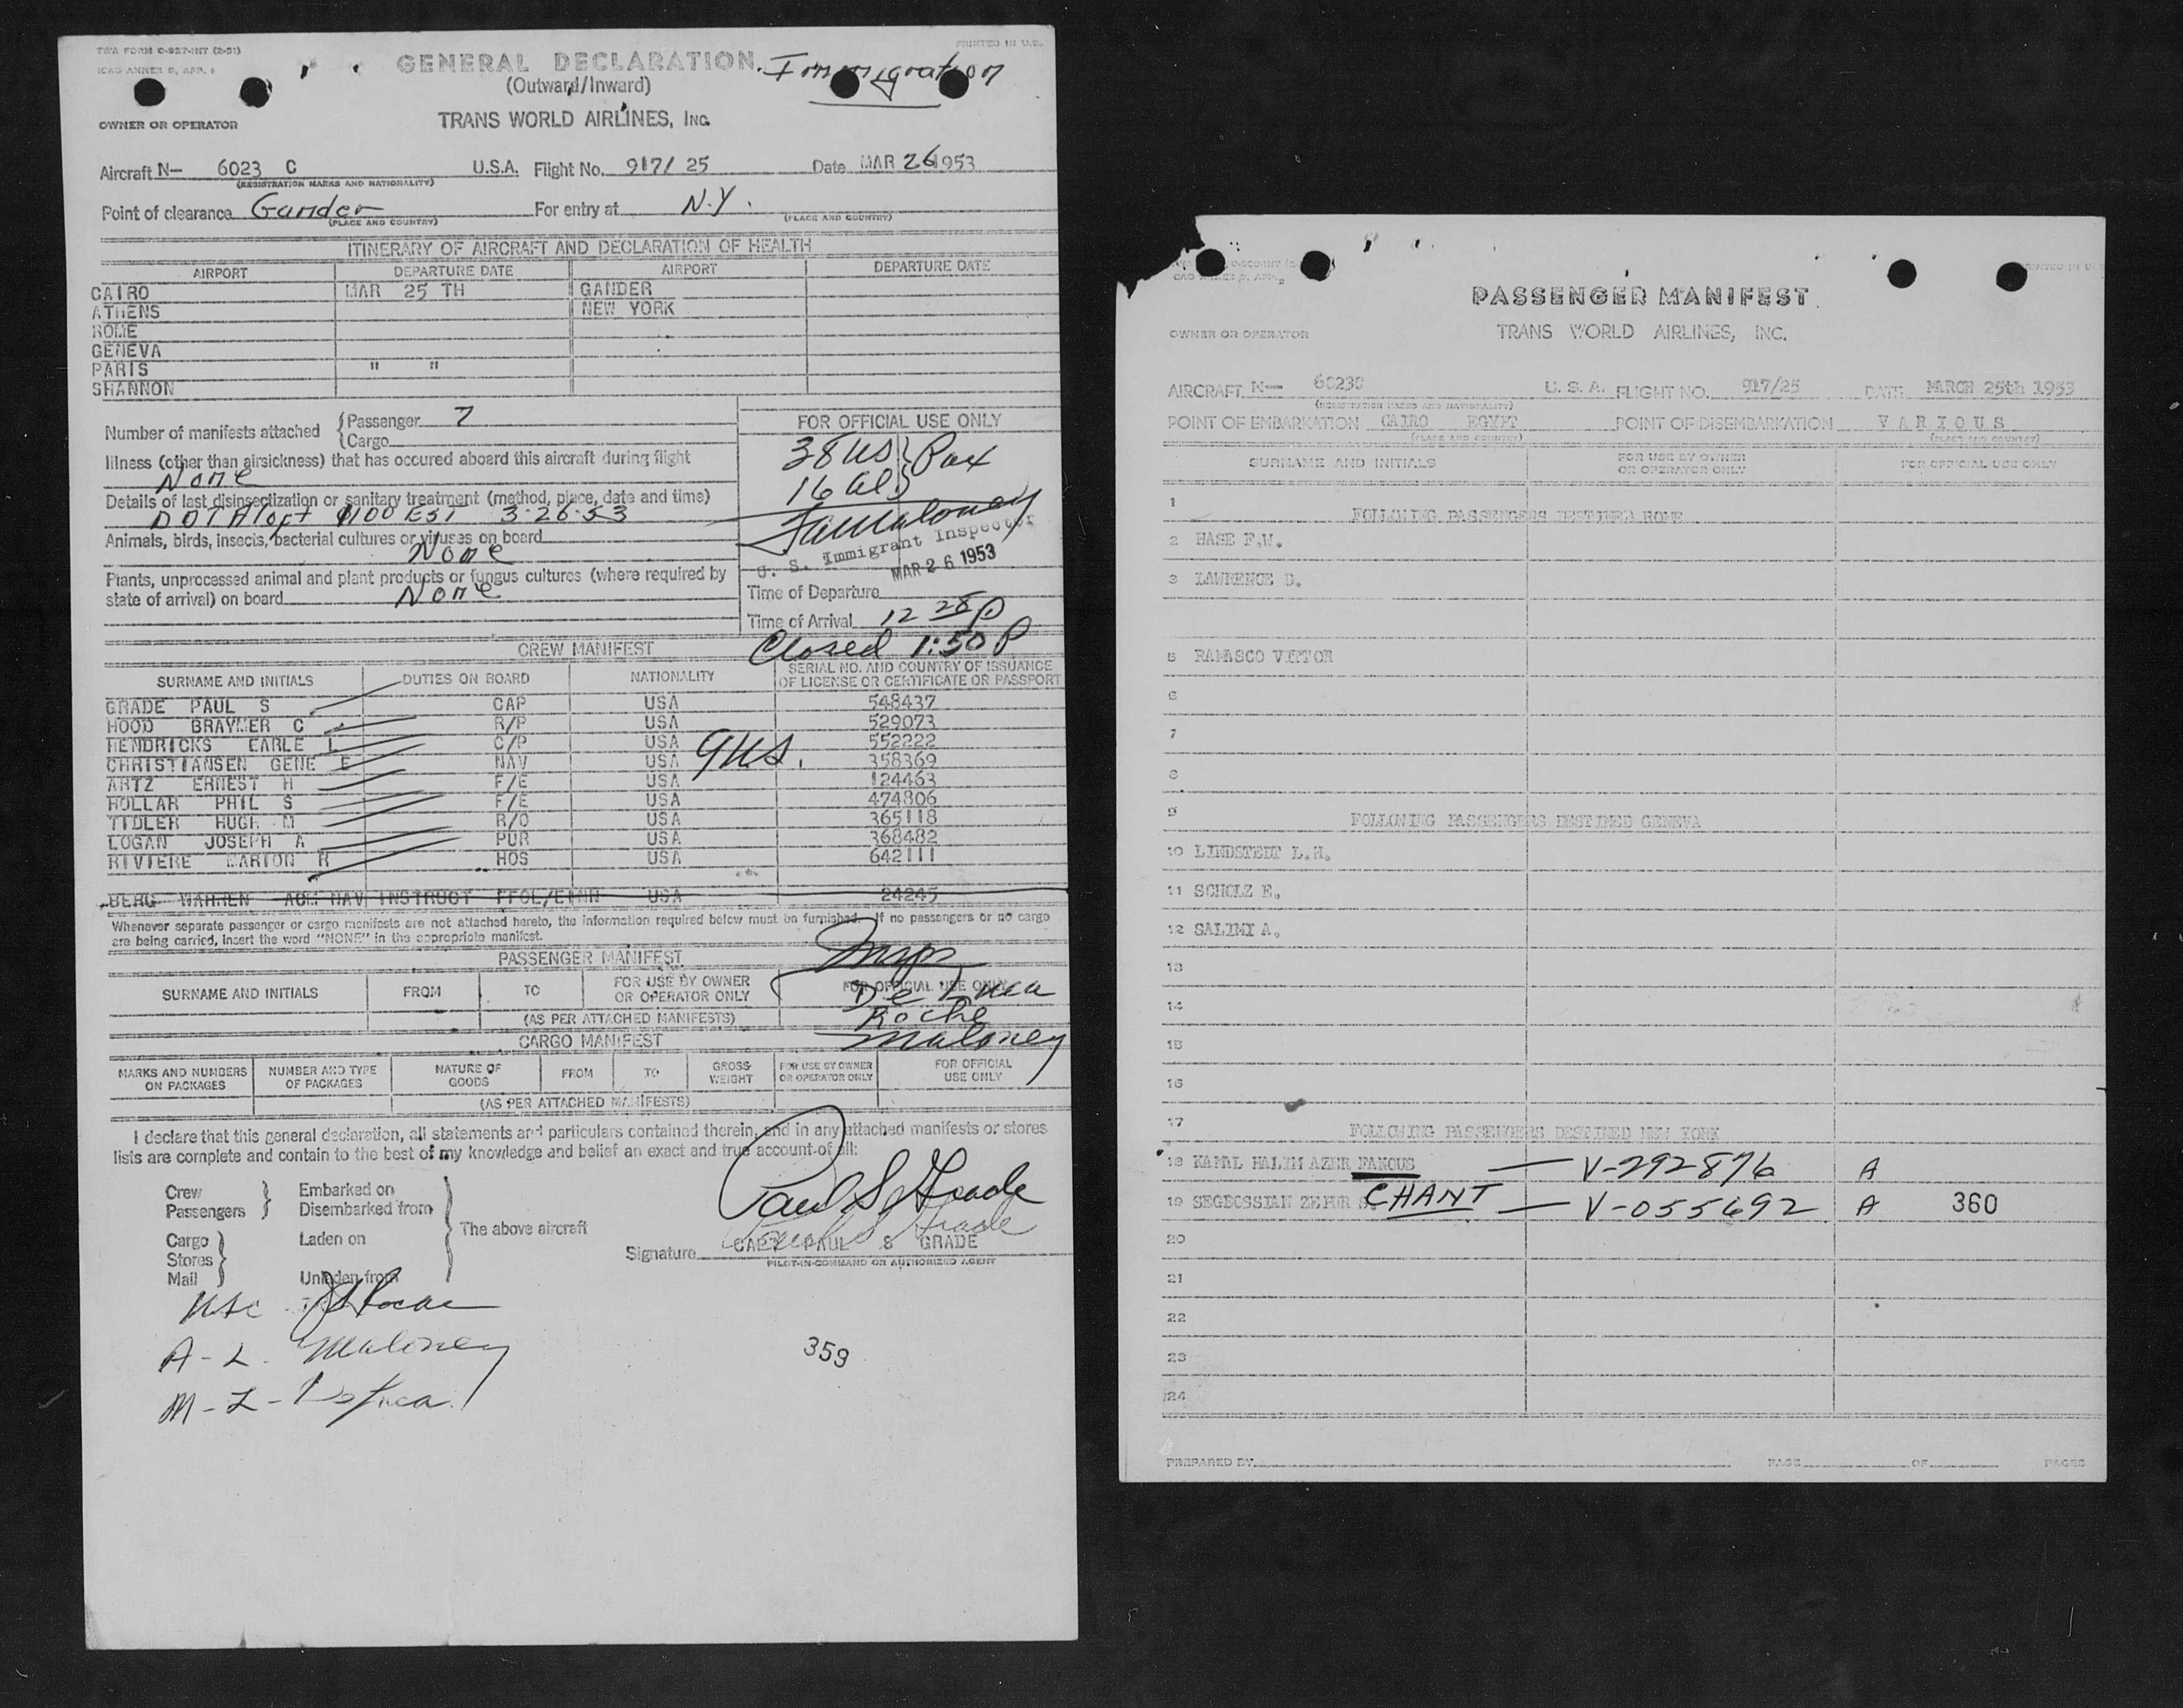 TWA FORM C-927-INT (2-51)
PRINTED IN U.S.
ICAO ANNEX 9, APP. 1
GENERAL DECLARATION
Immigration
(Outward/Inward)
OWNER OR OPERATOR
TRANS WORLD AIRLINES, INC.
Aircraft N— 6023 C U.S.A. Flight No. 917/ 25 Date MAR 26 1953
(REGISTRATION MARKS AND NATIONALITY)
Point of clearance Gander For entry at N.Y.
(PLACE AND COUNTRY) (PLACE AND COUNTRY)
ITINERARY OF AIRCRAFT AND DECLARATION OF HEALTH
AIRPORT DEPARTURE DATE AIRPORT DEPARTURE DATE
CAIRO MAR 25 TH GANDER
ATHENS NEW YORK
ROME
GENEVA
PARIS " "
SHANNON
Number of manifests attached { Passenger 7
Cargo
FOR OFFICIAL USE ONLY
38 US } Pax
16 Al
Illness (other than airsickness) that has occured aboard this aircraft during flight
None
Details of last disinsectization or sanitary treatment (method, place, date and time)
DDT Aloft 1100 EST 3-26-53
Animals, birds, insects, bacterial cultures or viruses on board
None
Plants, unprocessed animal and plant products or fungus cultures (where required by
state of arrival) on board None
Maloney
U. S. Immigrant Inspector
MAR 26 1953
Time of Departure
Time of Arrival 12 28 P
Closed 1:50 P
CREW MANIFEST
SURNAME AND INITIALS DUTIES ON BOARD NATIONALITY SERIAL NO. AND COUNTRY OF ISSUANCE OF LICENSE OR CERTIFICATE OR PASSPORT
GRADE PAUL S CAP USA 548437
HOOD BRAYMER C R/P USA 529073
HENDRICKS EARLE L C/P USA 552222
CHRISTIANSEN GENE E NAV USA 358369
9 US.
ARTZ ERNEST H F/E USA 124463
HOLLAR PHIL S F/E USA 474806
TIDLER HUGH M R/O USA 365118
LOGAN JOSEPH A PUR USA 368482
RIVIERE MARION R HOS USA 642111
BERG WARREN ACM NAV INSTRUCT FFOL/EWNN USA 24245
Whenever separate passenger or cargo manifests are not attached hereto, the information required below must be furnished. If no passengers or no cargo
are being carried, insert the word "NONE" in the appropriate manifest.
PASSENGER MANIFEST
SURNAME AND INITIALS FROM TO FOR USE BY OWNER OR OPERATOR ONLY FOR OFFICIAL USE ONLY
Insps
De Luca
Roche
Maloney
(AS PER ATTACHED MANIFESTS)
CARGO MANIFEST
MARKS AND NUMBERS ON PACKAGES NUMBER AND TYPE OF PACKAGES NATURE OF GOODS FROM TO GROSS WEIGHT FOR USE BY OWNER OR OPERATOR ONLY FOR OFFICIAL USE ONLY
(AS PER ATTACHED MANIFESTS)
I declare that this general declaration, all statements and particulars contained therein, and in any attached manifests or stores
lists are complete and contain to the best of my knowledge and belief an exact and true account of all:
Crew Embarked on
Passengers Disembarked from
The above aircraft
Cargo Laden on
Stores
Mail Unladen from
Paul S Grade
Paul S Grade
Signature CAPT PAUL S GRADE
PILOT-IN-COMMAND OR AUTHORIZED AGENT
USC Roche
A-L. Maloney
M-L- De Luca
359
PRINTED IN U.
PASSENGER MANIFEST
OWNER OR OPERATOR
TRANS WORLD AIRLINES, INC.
AIRCRAFT N— 6023C U. S. A. FLIGHT NO. 917/25 DATE MARCH 25th 1953
(REGISTRATION MARKS AND NATIONALITY)
POINT OF EMBARKATION CAIRO EGYPT POINT OF DISEMBARKATION VARIOUS
(PLACE AND COUNTRY) (PLACE AND COUNTRY)
SURNAME AND INITIALS FOR USE BY OWNER OR OPERATOR ONLY FOR OFFICIAL USE ONLY
1 FOLLOWING PASSENGERS DESTINED ROME
2 HASE F.W.
3 LAWRENCE D.
5 RAMASCO VIRTOR
6
7
8
9 FOLLOWING PASSENGERS DESTINED GENEVA
10 LINDSTEDT L.H.
11 SCHOLZ E.
12 SALIMI A.
13
14
15
16
17 FOLLOWING PASSENGERS DESTINED NEW YORK
18 KAMAL HALIM AZER FANOUS — V-292876 A
19 SEGBOSSIAN ZEPUR S. CHANT — V-055692 A 360
20
21
22
23
24
PREPARED BY PAGE OF PAGES